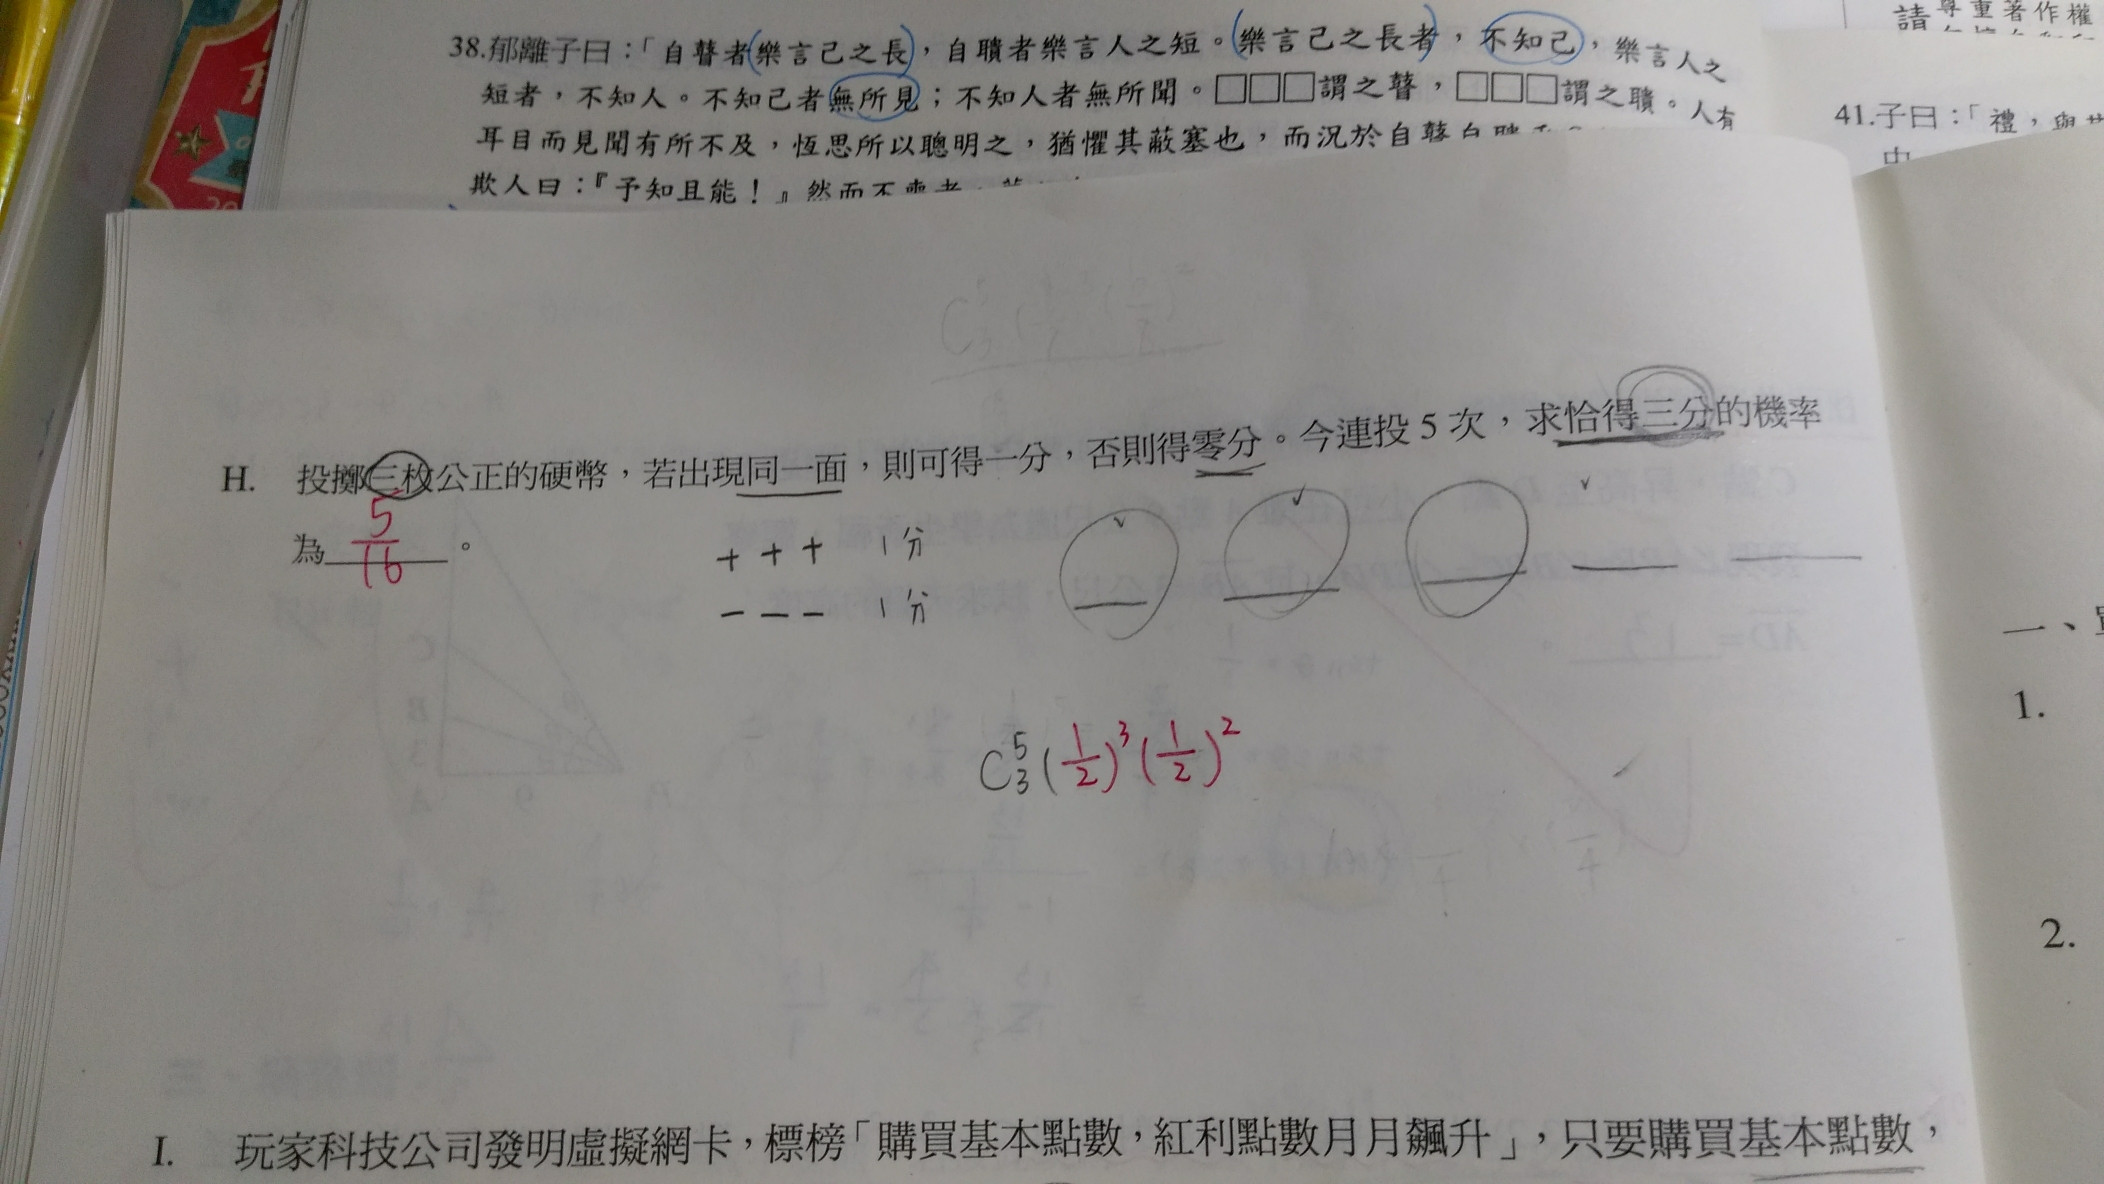 38.郁離子曰：「自瞽者樂言己之長，自聵者樂言人之短。樂言己之長者，不知己，樂言人之
短者，不知人。不知己者無所見；不知人者無所聞。□□□謂之瞽，□□□謂之聵。人有
耳目而見聞有所不及，恆思所以聰明之，猶懼其蔽塞也，而況於自瞽自
欺人曰：『予知且能！』然而不喪者
請尊重著作權
41.子曰：「禮，與其
H. 投擲三枚公正的硬幣，若出現同一面，則可得一分，否則得零分。今連投5次，求恰得三分的機率
為 5/16 。
+ + + 1分
− − − 1分
C⁵₃(1/2)³(1/2)²
一、
1.
2.
I. 玩家科技公司發明虛擬網卡，標榜「購買基本點數，紅利點數月月飆升」，只要購買基本點數，